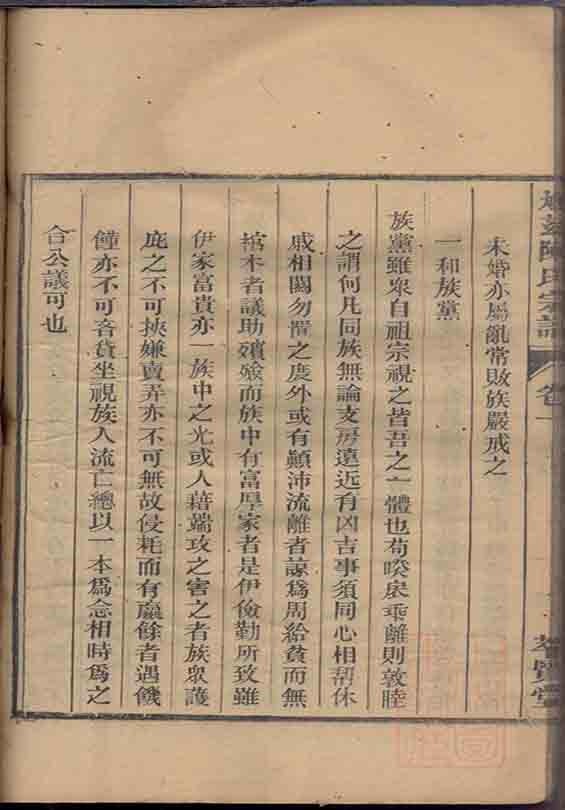 陳氏宗譜
卷一
未婚亦屬亂常敗族嚴戒之
一和族黨
族黨雖眾自祖宗視之皆吾之一體也苟暌戾乖離則敦睦
之謂何凡同族無論支房遠近有凶吉事須同心相幇休
戚相關勿置之度外或有顚沛流離者諒爲周給貧而無
棺木者議助殯殮而族中有富厚家者是伊儉勤所致雖
伊家富貴亦一族中之光或人藉端攻之害之者族眾護
庇之不可挾嫌賣弄亦不可無故侵耗而有贏餘者遇饑
饉亦不可吝貲坐視族人流亡總以一本爲念相時爲之
合公議可也